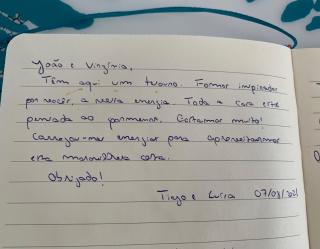 João e Virgínia,
Têm aqui um tesouro. Fomos inspirados
por vocês, a vossa energia. Toda a casa está
pensada ao pormenor. Gostamos muito!
Carregar-me energias para aproveitarmos
esta maravilhosa costa.
Obrigado!
Tiago e Luísa 07/08/2021